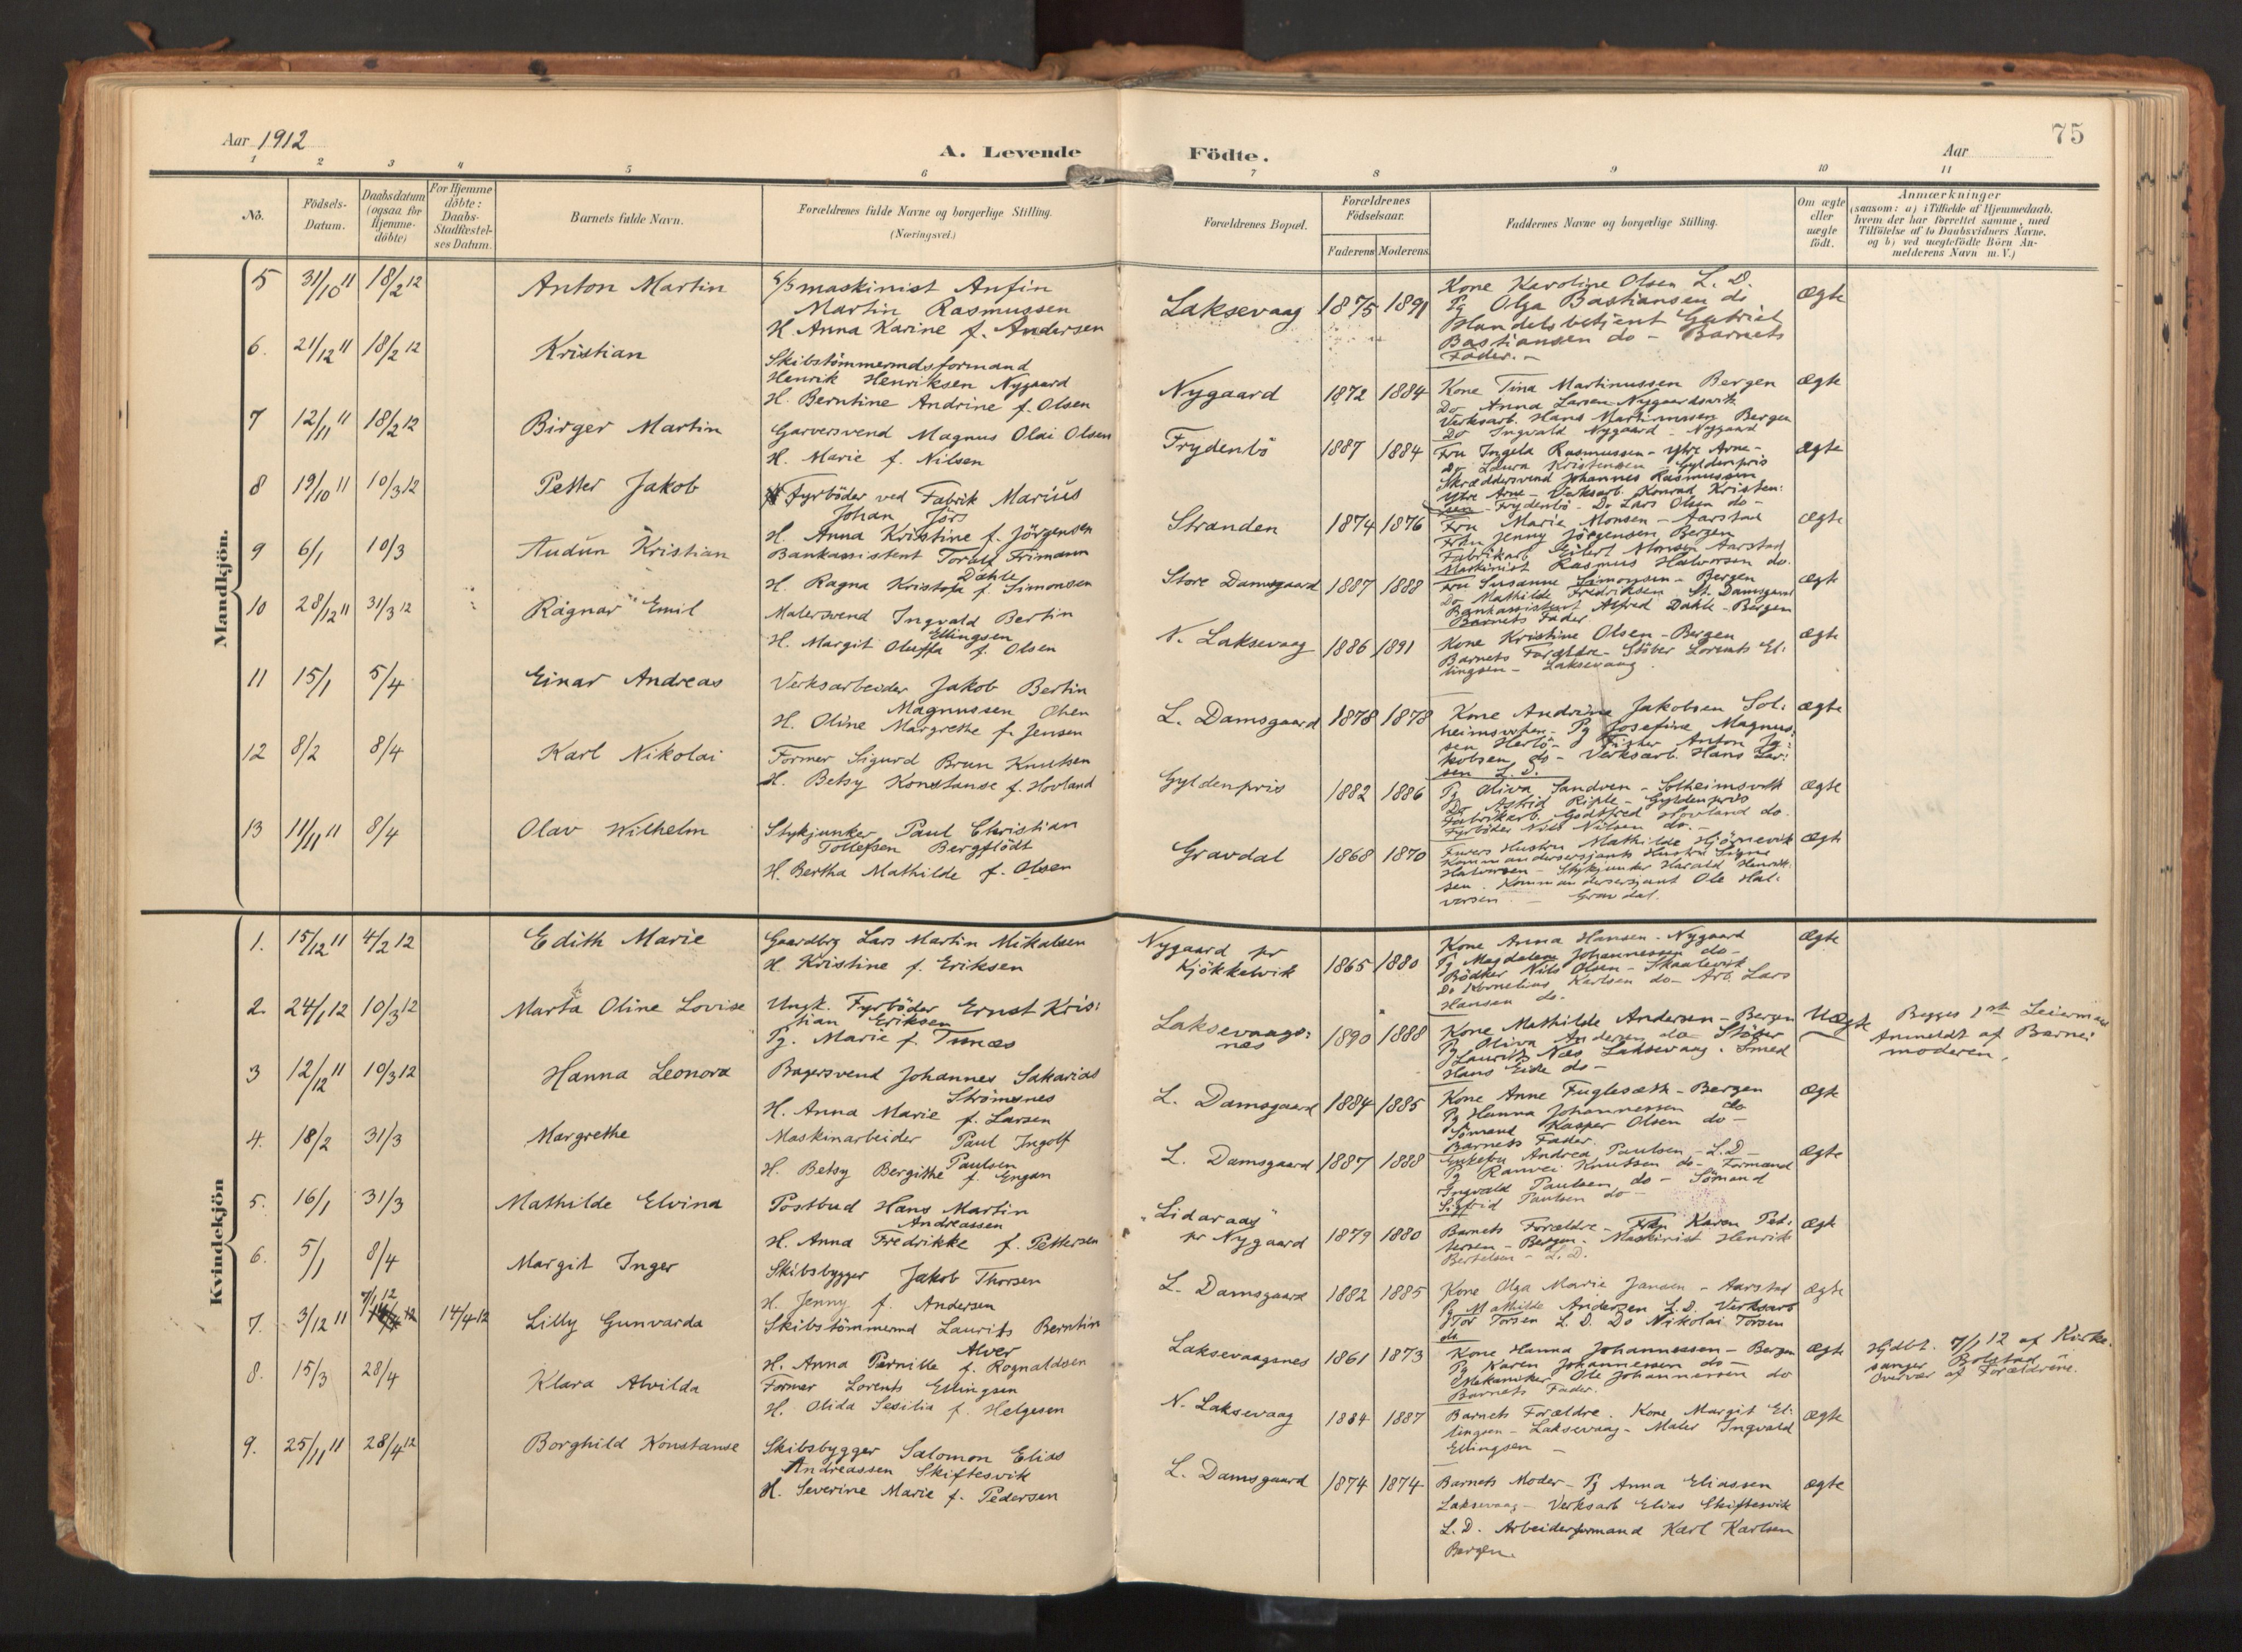 Aar 1912
A. Levende Födte.
Aar
75
1 2 3 4 5 6 7 8 9 10 11
No.
Födsels-Datum.
Daabsdatum (ogsaa for Hjemme-döbte)
For Hjemme döbte: Daabs-Stadfæstel-ses Datum.
Barnets fulde Navn.
Forældrenes fulde Navne og borgerlige Stilling.
(Næringsvei.)
Forældrenes Bopæl.
Forældrenes Födselsaar.
Faderens Moderens
Faddernes Navne og borgerlige Stilling.
Om ægte eller uægte födt.
Anmærkninger
(saasom: a) i Tilfælde af Hjemmedaab,
hvem der har forrettet samme, med
Tilföielse af to Daabsvidners Navne,
og b) ved uægtefödte Börn An-
melderens Navn m. V.)
Mandkjön.
5 31/10 11 18/2 12 Anton Martin
maskinist Anfin
Martin Rasmussen
H. Anna Karine f. Andersen
Laksevaag 1875 1891
Kone Karoline Olsen L. D.
Pg Olga Bastiansen do
Handelsbetjent Gabriel
Bastiansen do - Barnets
Fader. -
ægte
6. 21/12 11 18/2 12 Kristian
Skibstömmermdsformand
Henrik Henriksen Nygaard
H. Berntine Andrine f. Olsen
Nygaard 1872 1884
Kone Tina Martinussen Bergen
Do Anna Larsen Nygaardsvik
Verksarb. Hans Martinussen Bergen
Do Ingvald Nygaard - Nygaard
ægte
7 12/11 11 18/2 12 Birger Martin
Garversvend Magnus Olai Olsen
H. Marie f. Nilsen
Frydenbö 1887 1884
Fru Ingela Rasmussen - Ytre Arne -
Do Laura Kristensen - Gyldenpris
Skræddersvend Johannes Rasmussen
Ytre Arne - Verksarb. Konrad Kristen:
sen - Frydenbö - Do Lars Olsen do -
ægte
8 19/10 11 10/3 12 Petter Jakob
Fyrböder ved Fabrik Marius
Johan Jörs
H. Anna Kristine f. Jörgensen
Stranden 1874 1876
Fru Marie Monsen - Aarstad
Frkn Jenny Jörgensen Bergen
Fabrikarb Eilert Monsen Aarstad
Maskinist Rasmus Halvorsen do.
ægte
9 6/1 10/3 Audun Kristian
Bankassistent Toralf Frimann
Dahle
H. Ragna Kristofa f. Simonsen
Store Damsgaard 1887 1888
Fru Susanne Simonsen - Bergen
Do Mathilde Fredriksen St. Damsgaard
Bankassistent Alfred Dahle - Bergen
Barnets Fader
ægte
10 28/12 11 31/3 12 Ragnar Emil
Malersvend Ingvald Bertin
Ellingsen
H. Margit Oluffa f. Olsen
N. Laksevaag 1886 1891
Kone Kristine Olsen - Bergen
Barnets Forældre - Stöber Lorents El:
lingsen - Laksevaag.
ægte
11 15/1 5/4 Einar Andreas
Verksarbeider Jakob Bertin
Magnussen
H. Oline Margrethe f. Jensen
L. Damsgaard 1878 1878
Kone Andrine Jakobsen Sol:
heimsviken - Pg Josefine Magnus:
sen Herlö - Fisker Anton Ja:
kobsen do - Verksarb. Hans Lar:
sen L. D.
ægte
12 8/2 8/4 Karl Nikolai
Former Sigurd Brun Knutsen
H. Betsy Konstanse f. Hovland
Gyldenpris 1882 1886
Pg Oliva Sandven - Solheimsvik
Do Astrid Riple - Gyldenpris
Fabrikarb. Godtfred Hovland do.
Fyrböder Nils Nilsen do. -
ægte
13 11/11 11 8/4 Olav Wilhelm
Stykjunker Paul Christian
Tollefsen Bergflödt
H. Bertha Mathilde f. Olsen
Gravdal 1868 1870
Hustru Mathilde Hjörnevik
Kommandersersjants Hustru Signe
Halvorsen - Stykjunker Harald Henrik:
sen. Kommandersersjant Ole Hal:
vorsen - Gravdal.
ægte
Kvindekjön
1. 15/12 11 4/2 12 Edith Marie
Gaardbrg Lars Martin Mikalsen
H. Kristine f. Eriksen
Nygaard pr
Kjökkelvik
1865 1880
Kone Anna Hansen - Nygaard
Pg Magdalene Johannessen do -
Bödker Nils Olsen - Skaalevik
Do Kornelius Karlsen do - Arb. Lars
Hansen do.
ægte
2. 24/1 12 10/3 12 Marta Oline Lovise
Ungk. Fyrböder Ernst Kris:
tian Eriksen
Pg. Marie f. Tunæs
Laksevaags:
nes
1890 1888
Kone Mathilde Andersen - Bergen
Pg Oliva Andersen do Stöber
Laurits Næs Laksevaag. Smed
Hans Eide do -
Uægte
Begges 1st Leiermaal
Anmeldt af Barne:
moderen.
3 12/12 11 10/3 12 Hanna Leonora
Bagersvend Johannes Sakarias
Strömsnes
H. Anna Marie f. Larsen
L. Damsgaard 1884 1885
Kone Anne Fuglesæth - Bergen
Pg Hanna Johannessen do
Sömand Kasper Olsen do -
Barnets Fader.
ægte
4. 18/2 31/3 Margrethe
Maskinarbeider Paul Ingolf
Paulsen
H. Betsy Bergithe f. Engan
L. Damsgaard 1887 1888
Enkefru Andrea Paulsen - L.D -
Pg Ranvei Knutsen do - Formand
Ingvald Paulsen do - Sömand
Sigfrid Paulsen do -
ægte
5. 16/1 31/3 Mathilde Elvina
Postbud Hans Martin
Andreassen
H. Anna Fredrikke f. Pettersen
"Lidaraas"
pr Nygaard
1879 1880
Barnets Forældre - Frkn Karen Pet:
tersen - Bergen. Maskinist Henrik
Bertelsen - L.D.
ægte
6. 5/1 8/4 Margit Inger
Skibsbygger Jakob Thorsen
H. Jenny f. Andersen
L. Damsgaard 1882 1885
Kone Olga Marie Jansen - Aarstad
Pg Mathilde Andersen L.D. Verksarb
Tor Torsen L.D. Do Nikolai Torsen
do
ægte
7. 3/12 11 7/1 12 14/4 12 Lilly Gunvarda
Skibstömmermd Laurits Berntin
Alver
H. Anna Pernille f. Rognaldsen
Laksevaagsnes 1861 1873
Kone Hanna Johannessen - Bergen
Pg Karen Johannessen do -
Mekaniker Ole Johannessen do
Barnets Fader.
ægte
Hjdbt. 7/1 12 af Kirke.
sanger Bolstad
Overvær af Forældrene.
8. 15/3 28/4 Klara Alvilda
Former Lorents Ellingsen
H. Olida Sesilia f. Helgesen
N. Laksevaag 1884 1887
Barnets Forældre. Kone Margit El:
lingsen - Laksevaag - Maler Ingvald
Ellingsen -
ægte
9. 25/11 11 28/4 12 Borghild Konstanse
Skibsbygger Salomon Elias
Andreassen Skiftesvik
H. Severine Marie f. Pedersen
L. Damsgaard 1874 1874
Barnets Moder - Pg Anna Eliassen
Laksevaag - Verksarb Elias Skiftesvik
L. D. Arbeiderformand Karl Karlsen
Bergen.
ægte